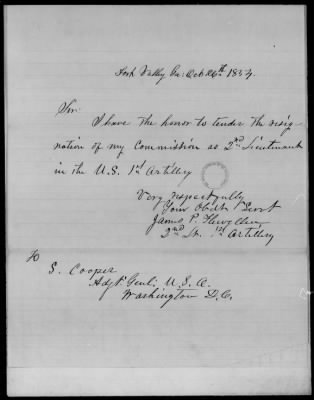 Fort Valley Ga: Oct 26th 1854.
Sir:
I have the honor to tender the resig-
nation of my Commission as 2nd Lieutenant
in the U.S. 1st Artillery
Very respectfully
Your Obdt Servt
James P. Flewellen
2nd Lt. 1st Artillery
To
S. Cooper
Adjt. Genl: U.S.A.
Washington D.C.